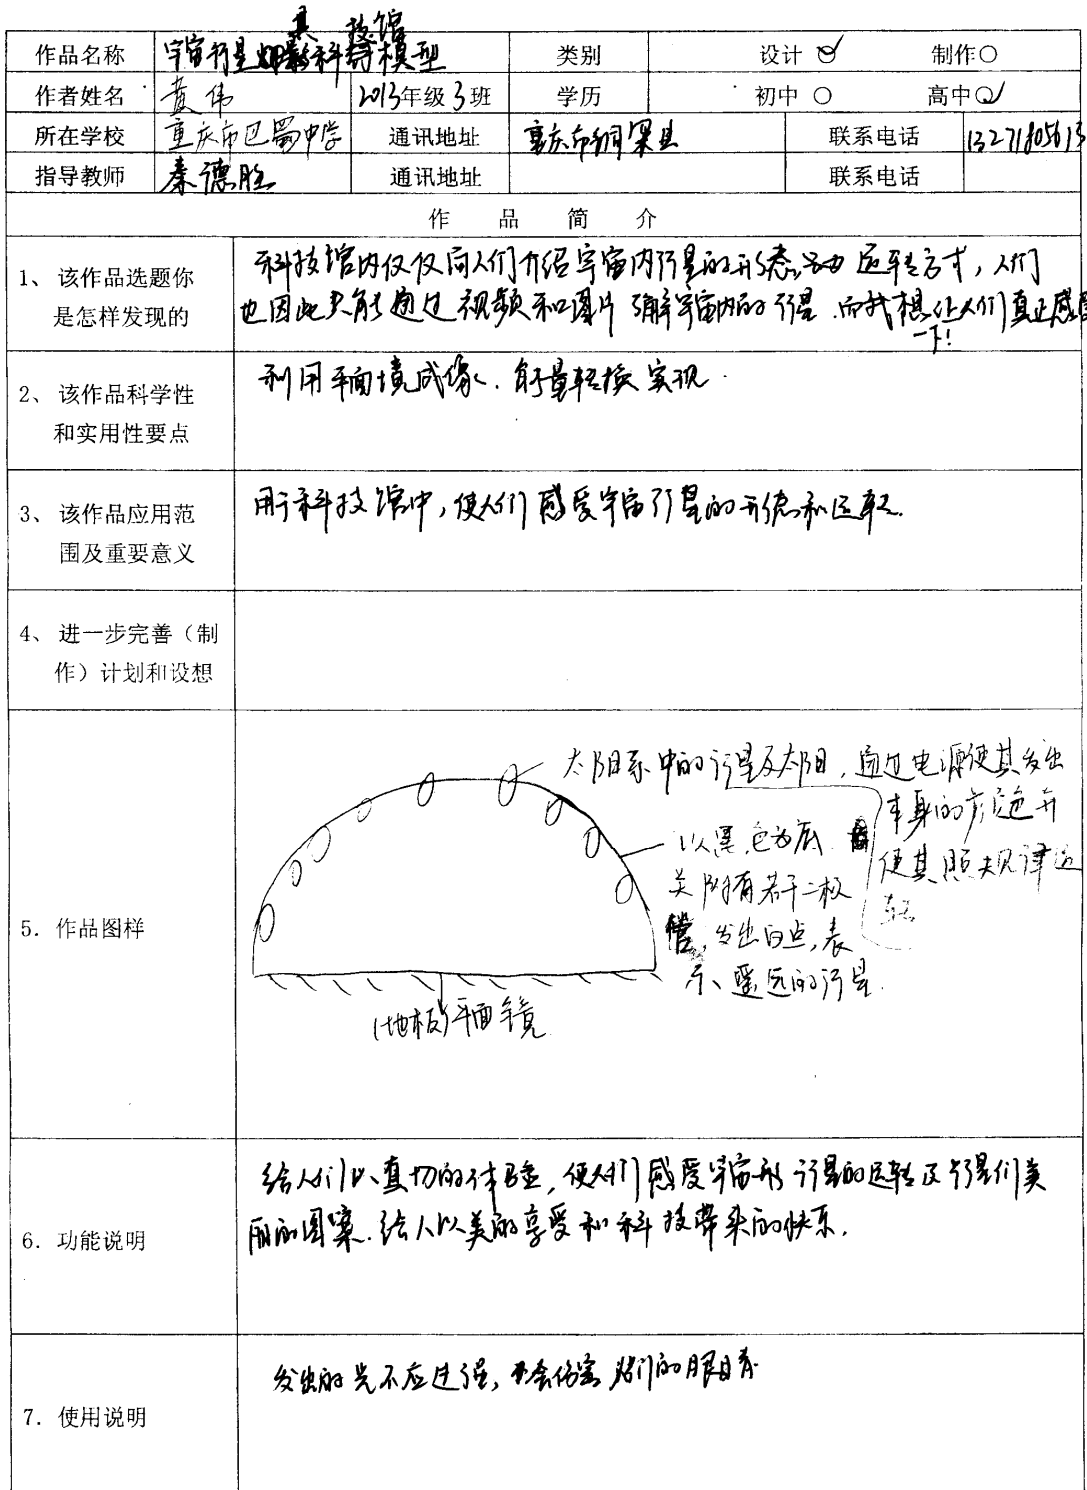 其 技馆
作品名称 宇宙行星科模型 类别 设计 制作
作者姓名 黄伟 2013年级3班 学历 初中 高中
所在学校 重庆市巴蜀中学 通讯地址 重庆市铜梁县 联系电话 13271805613
指导教师 秦德胜 通讯地址 联系电话
作品简介
1、该作品选题你
是怎样发现的
科技馆内仅仅向人们介绍宇宙内行星的形态运转方式，人们
也因此只能通过视频和图片了解宇宙内的行星.而我想让人们真正感受
一下!
2、该作品科学性
和实用性要点
利用平面境成像.能量转换实现.
3、该作品应用范
围及重要意义
用于科技馆中，使人们感受宇宙行星的形态和运转.
4、进一步完善（制
作）计划和设想
5．作品图样
太阳系中的行星及太阳，通过电源使其发出
本身的颜色并
使其照规律运
转
以黑色为底
并附有若干二极
管，发出白点，表
示遥远的行星.
(地板)平面镜
6．功能说明
给人们以真切的体验，使人们感受宇宙行星的运转及行星们美
丽的图案.给人以美的享受和科技带来的快乐.
7．使用说明
发出的光不应过强，不会伤害人们的眼睛